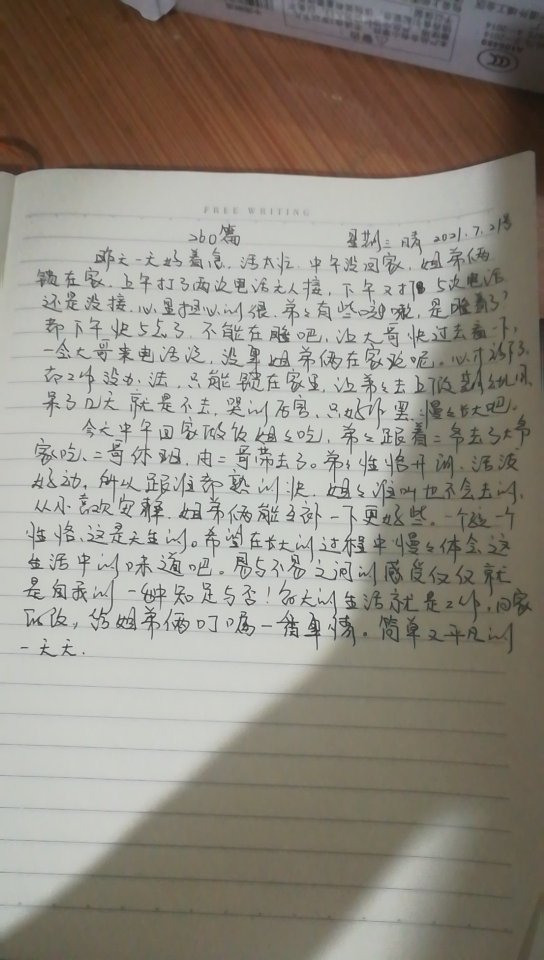 FREE WRITING
260篇 星期三 晴 2021.7.21号
昨天一天好着急,活太忙,中午没回家,姐弟俩
锁在家,上午打了两次电话无人接,下午又打 5次电话
还是没接,心里担心的很,弟弟有些咳嗽,是睡着了?
都下午快5点了,不能在睡吧,让大哥快过去看一下,
一会大哥来电话说,没事姐弟俩在家玩呢。心才放下了
去工作没办法,只能锁在家里,让弟弟去上
呆了几天就是不去,哭的厉害,只好作罢,慢慢长大吧。
今天中午回家做饭姐姐吃,弟弟跟着二爷去了大爷
家吃,二哥休班,由二哥带去了。弟弟性格开朗,活波
好动,所以跟谁都熟的快,姐姐谁叫也不会去的,
从小喜欢安静,姐弟俩能互补一下更好些。一个娃一个
性格,这是天生的。希望在长大的过程中慢慢体会这
生活中的味道吧。易与不易之间的感受仅仅就
是自我的一种知足与否!每天的生活就是工作,回家
做饭,给姐弟俩叮嘱一番事情。简单又平凡的
一天天.